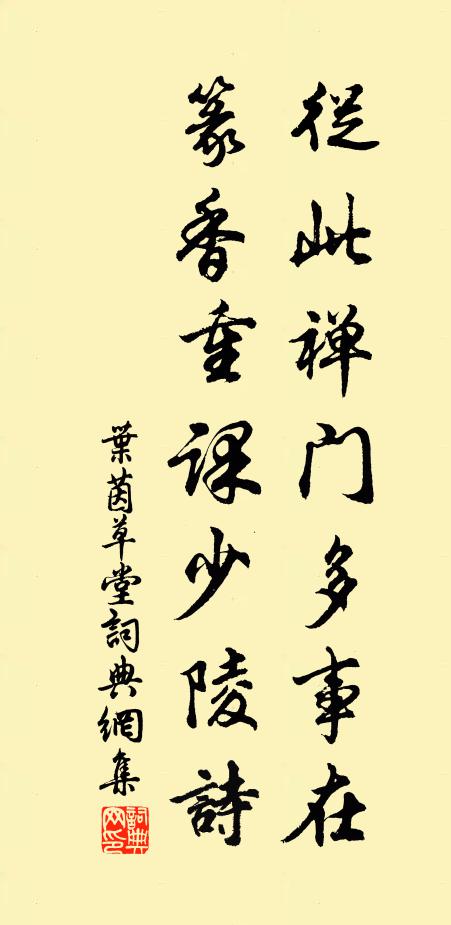 從此禅門多事在
篆香重課少陵詩
葉茵草堂詞典網集
詞典网印